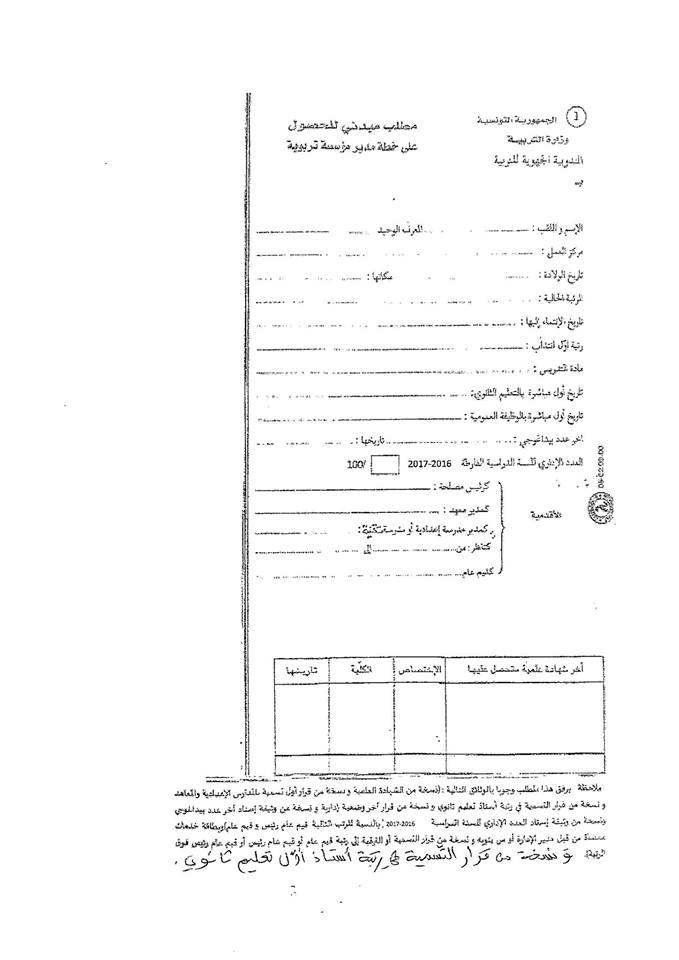 1
الجمهورية التونسية
وزارة التربية
المندوبية الجهوية للتربية
بـ
مطلب مبدئي للحصول
على خطة مدير مؤسسة تربوية
الإسم و اللقب : المعرف الوحيد
مركز العمل :
تاريخ الولادة : مكانها :
الرتبة الحالية :
تاريخ الإنتماء إليها :
رتبة أول انتداب :
مادة التدريس :
تاريخ أول مباشرة بالتعليم الثانوي:
تاريخ أول مباشرة بالوظيفة العمومية :
آخر عدد بيداغوجي : تاريخها :
العدد الإداري للسنة الدراسية الفارطة 2016-2017 /100
الأقدمية
كرئيس مصلحة :
كمدير معهد :
كمدير مدرسة إعدادية أو مدرسة تقنية :
كناظر : من إلى
كقيم عام
آخر شهادة علمية متحصل عليها الإختصاص الكلية تاريخها
ملاحظة يرفق هذا المطلب وجوبا بالوثائق التالية : (نسخة من الشهادة العلمية و نسخة من قرار أول تسمية بالمدارس الإعدادية والمعاهد
و نسخة من قرار التسمية في رتبة أستاذ تعليم ثانوي و نسخة عن قرار آخر وضعية إدارية و نسخة عن وثيقة إسناد آخر عدد بيداغوجي
ونسخة من وثيقة إسناد العدد الإداري للسنة الدراسية 2016-2017 ,بالنسبة للرتب التالية قيم عام رئيس و قيم عام)وبطاقة خدمات
ممضاة من قبل مدير الإدارة أو من ينوبه و نسخة من قرار التسمية أو الترقية إلى رتبة قيم عام أو قيم عام رئيس أو قيم عام رئيس فوق
الرتبة).
و نسخة من قرار التسمية في رتبة أستاذ أوّل تعليم ثانوي .